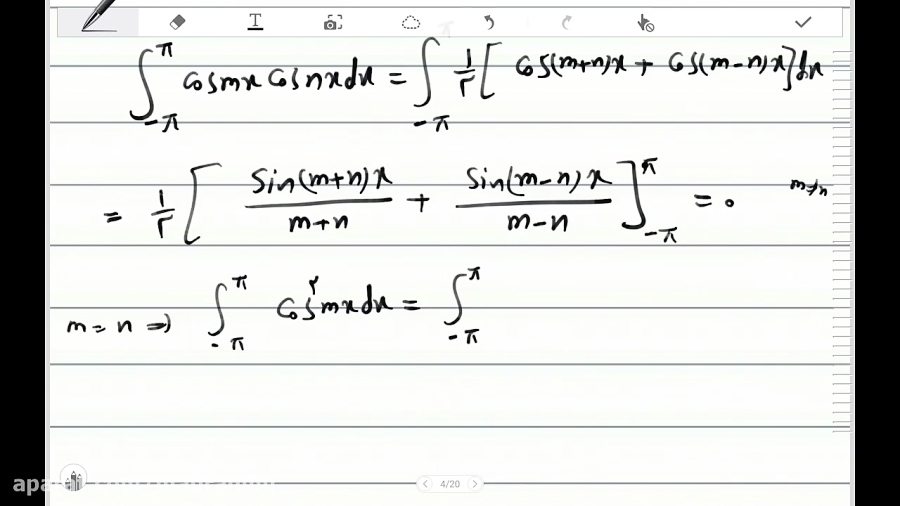 ∫_{-π}^{π} Cosmx Cosnxdx = ∫_{-π}^{π} 1/۲ [ Cos(m+n)x + Cos(m-n)x ] dx
= 1/۲ [ Sin(m+n)x / m+n + Sin(m-n)x / m-n ]_{-π}^{π} = ۰ m≠n
m = n ⇒ ∫_{-π}^{π} Cos^۲ mxdx = ∫_{-π}^{π}
4/20